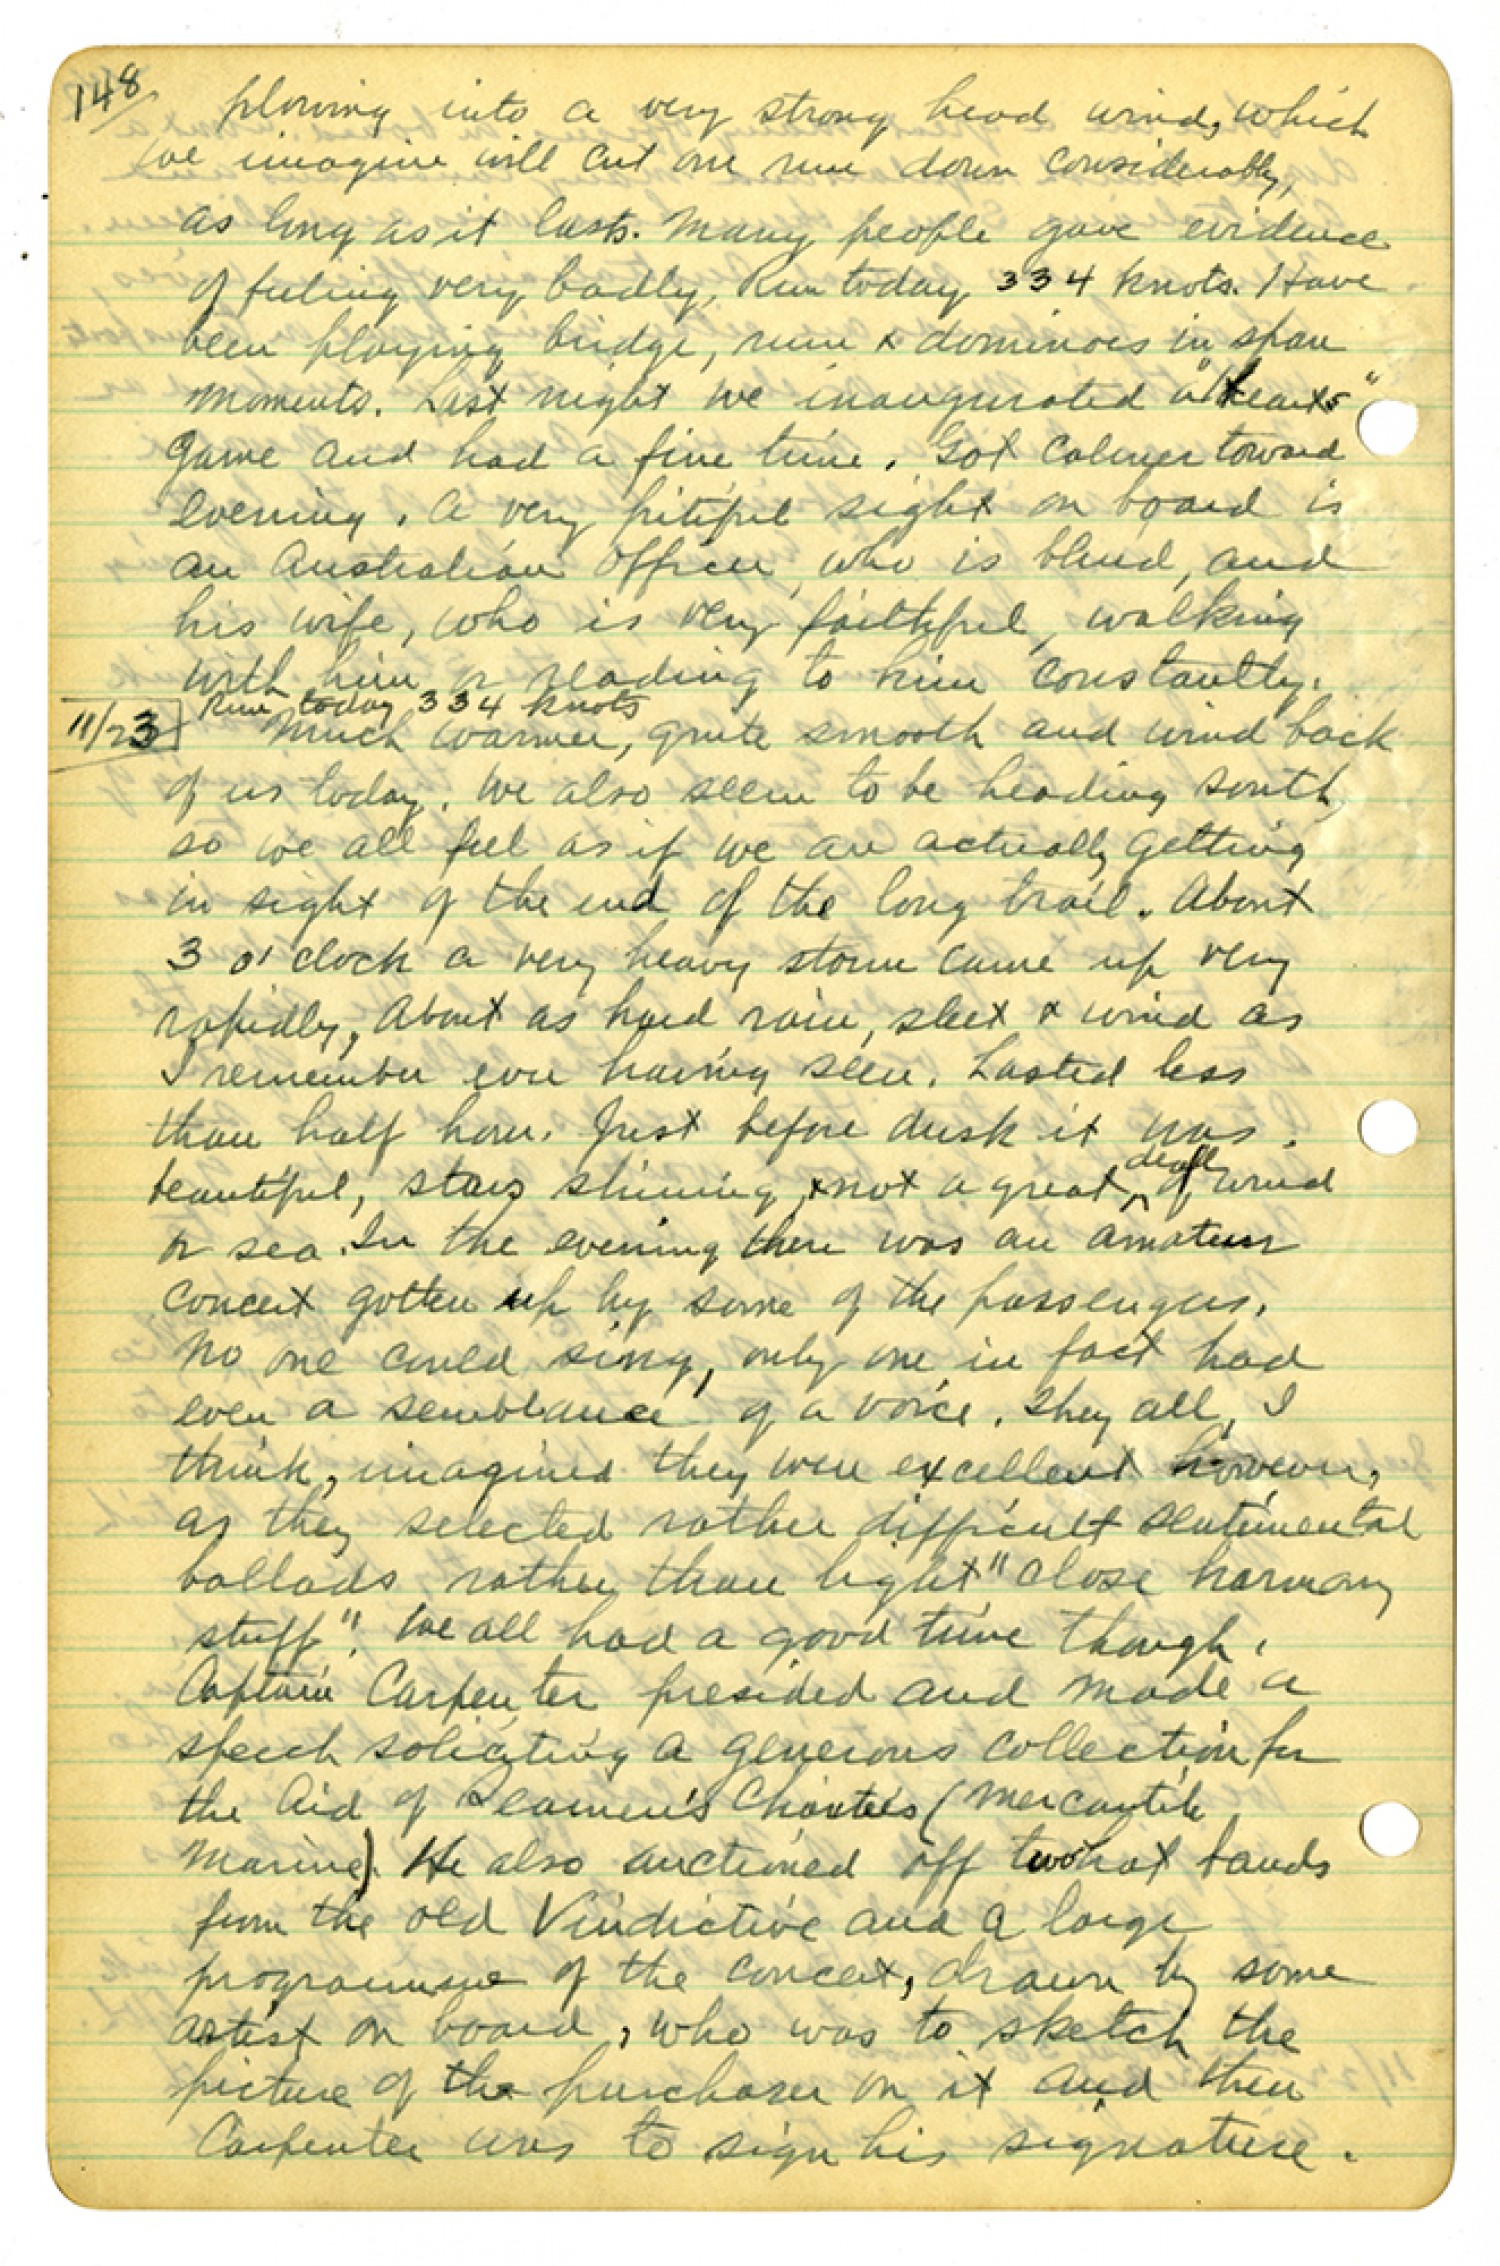 148
plowing into a very strong head wind, which
we imagine will cut our run down considerably,
as long as it lasts. Many people gave evidence
of feeling very badly, Run today 334 knots. Have
been playing bridge, rum & dominoes in spare
moments. Last night we inaugurated a "Hearts"
game and had a fine time. Got calmer toward
evening. A very pitiful sight on board is
an Australian officer, who is blind, and
his wife, who is very faithful, walking
with him or reading to him constantly.
Run today 334 knots
11/23 Much warmer, quite smooth and wind back
of us today. We also seem to be heading south,
so we all feel as if we are actually getting
in sight of the end of the long trail. About
3 o'clock a very heavy storm came up very
rapidly, About as hard rain, sleet & wind as
I remember ever having seen. Lasted less
than half hour. Just before dusk it was
beautiful, stars shining, & not a great deal of wind
or sea. In the evening there was an amateur
concert gotten up by some of the passengers.
No one could sing, only one in fact had
even a semblance of a voice. They all, I
think, imagined they were excellent however,
as they selected rather difficult sentimental
ballads rather than light "close harmony
stuff". We all had a good time though.
Captain Carpenter presided and made a
speech soliciting a generous collection for
the Aid of Seamen's Charities (Mercantile
Marine). He also auctioned off two hat bands
from the old Vindictive and a large
programme of the concert, drawn by some
artist on board, who was to sketch the
picture of the purchaser on it and then
Carpenter was to sign his signature.